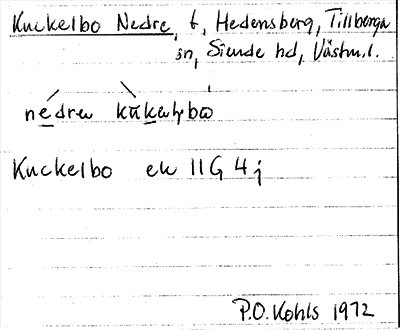 Kuckelbo Nedre, t, Hedensberg, Tillberga
sn, Siende hd, Västm.l.
nedrɷ kukɷlbɷ
Kuckelbo ek 11G 4j
P.O. Kohls 1972